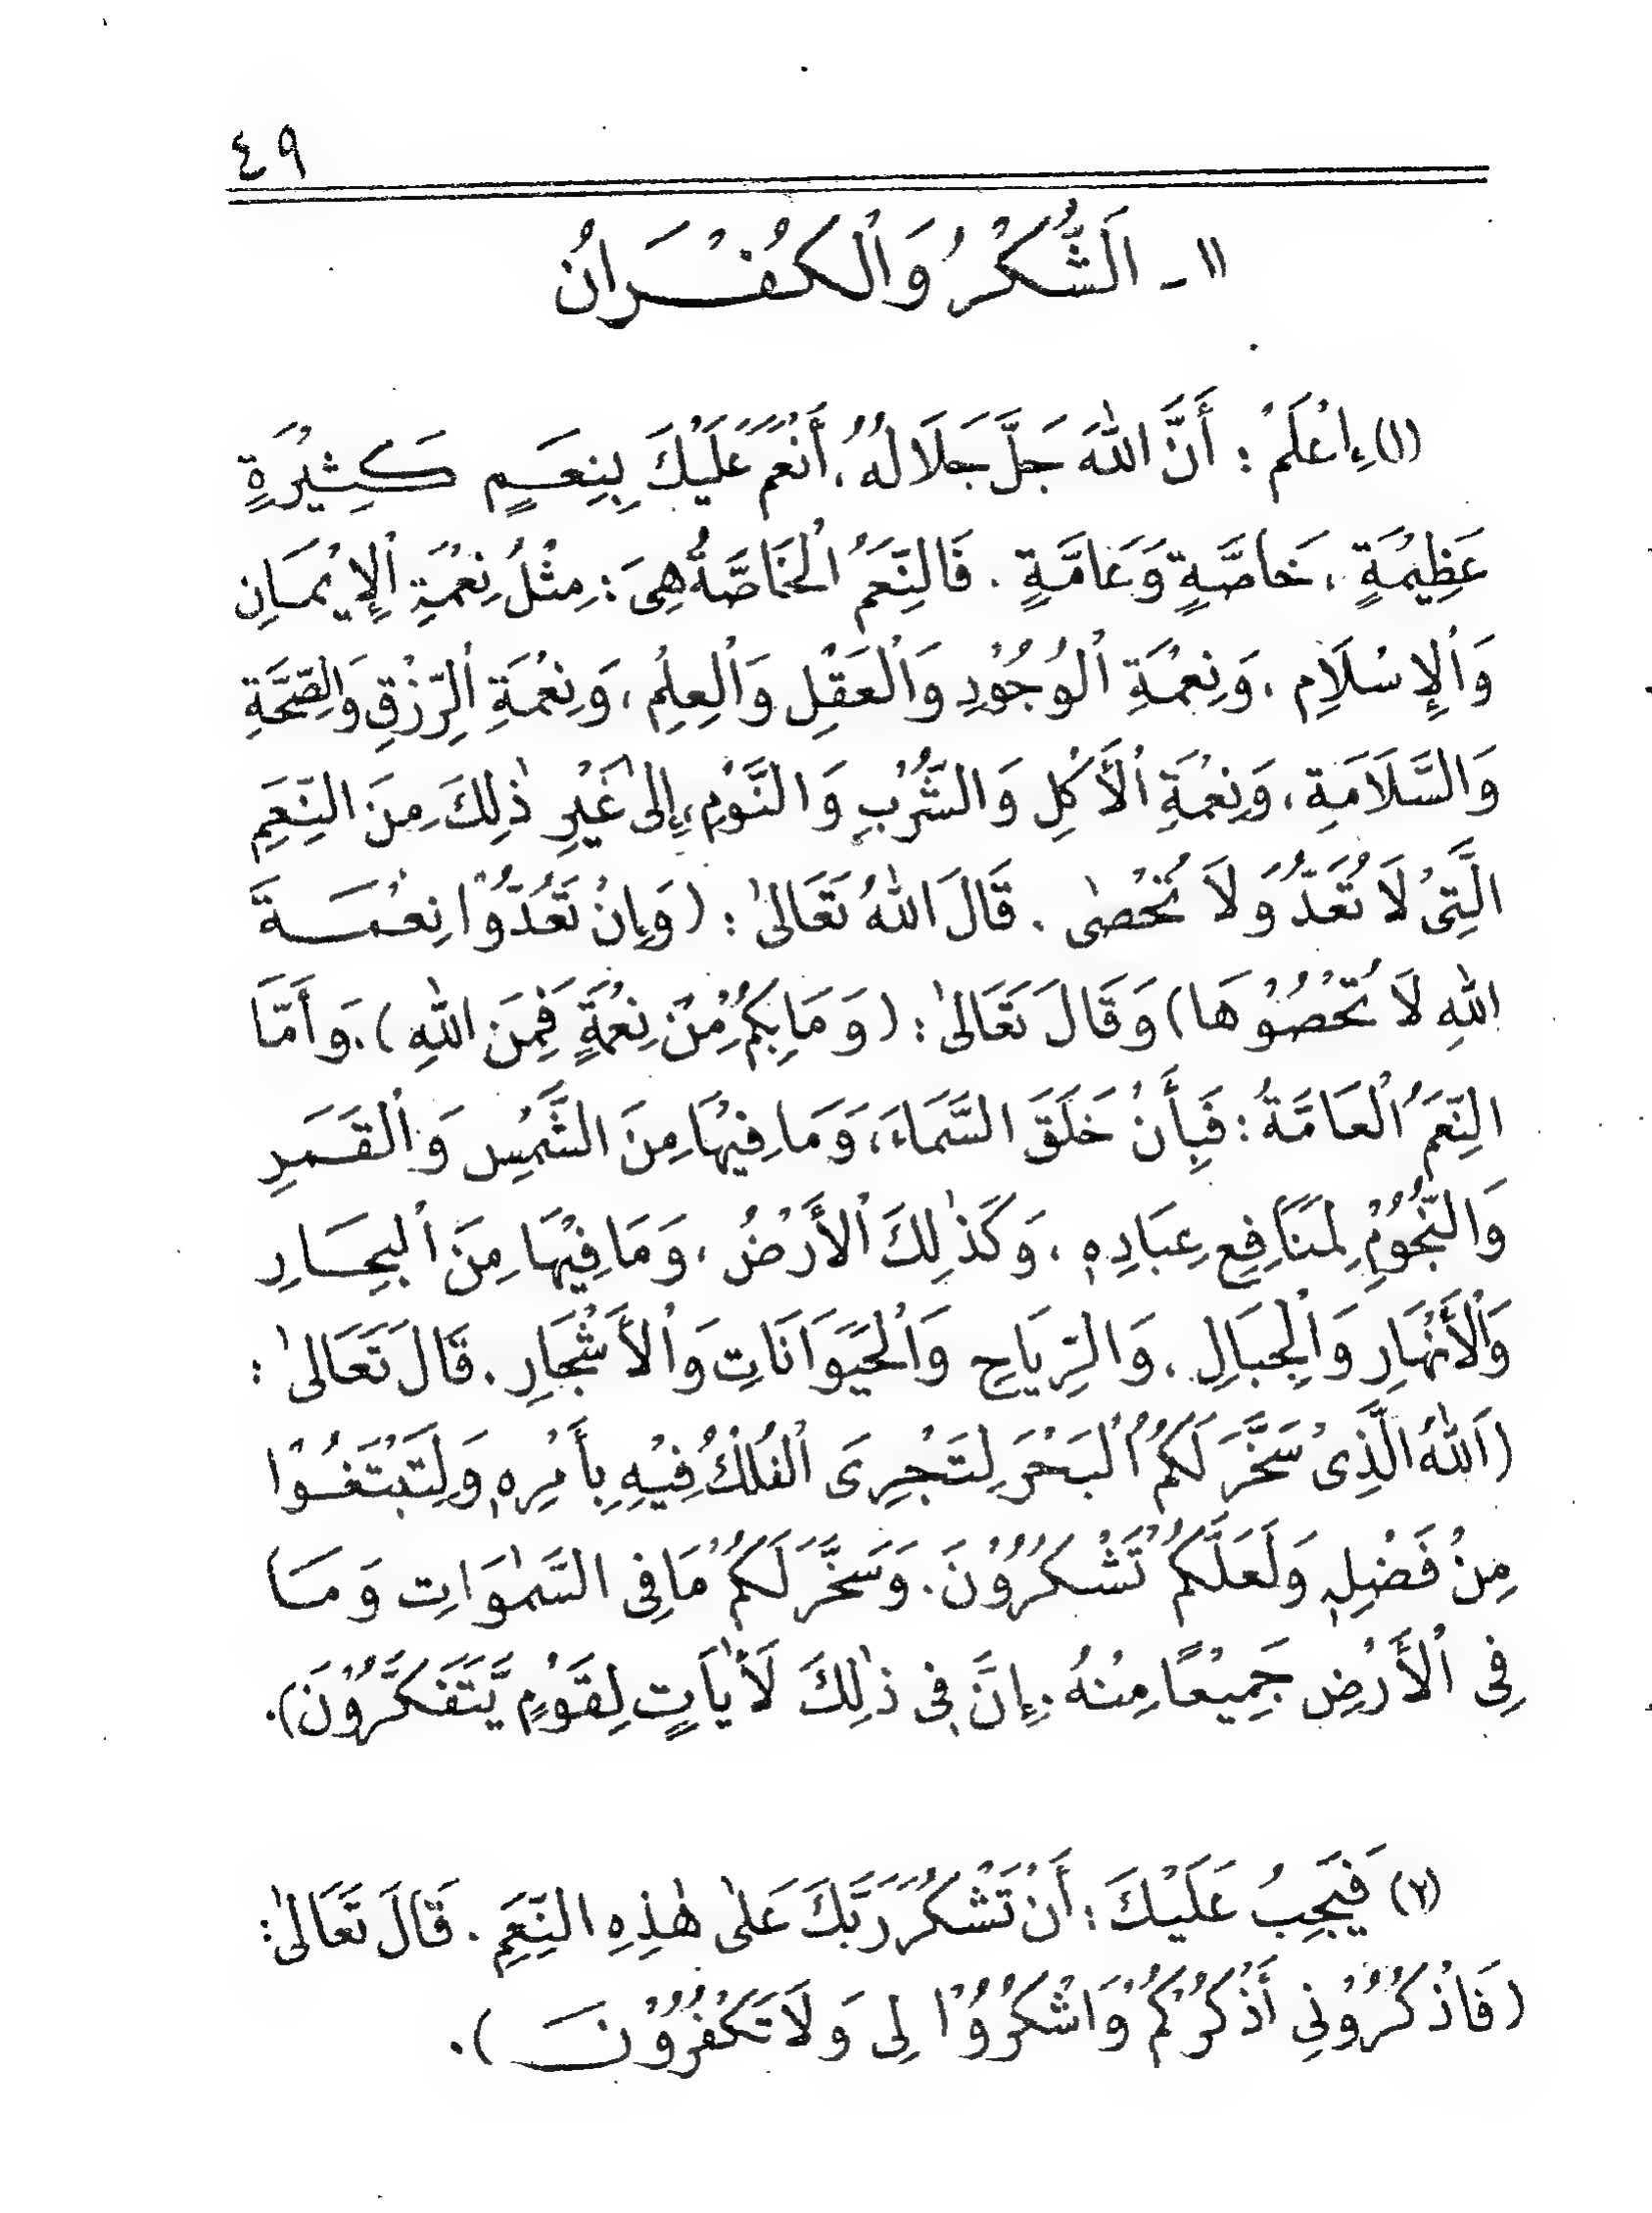 ٤٩
١١ - اَلشُّكْرُ وَالْكُفْرَانُ
(١) إِعْلَمْ : أَنَّ اللهَ جَلَّ جَلَالُهُ، أَنْعَمَ عَلَيْكَ بِنِعَمٍ كَثِيْرَةٍ
عَظِيْمَةٍ ، خَاصَّةٍ وَعَامَّةٍ . فَالنِّعَمُ الْخَاصَّةُ هِىَ : مِثْلُ نِعْمَةِ الْإِيْمَانِ
وَالْإِسْلَامِ ، وَنِعْمَةِ الْوُجُوْدِ وَالْعَقْلِ وَالْعِلْمِ ، وَنِعْمَةِ الرِّزْقِ وَالصِّحَّةِ
وَالسَّلَامَةِ ، وَنِعْمَةِ الْأَكْلِ وَالشُّرْبِ وَالنَّوْمِ، إِلىٰ غَيْرِ ذٰلِكَ مِنَ النِّعَمِ
الَّتِىْ لَا تُعَدُّ وَلَا تُحْصٰى . قَالَ اللهُ تَعَالىٰ : (وَإِنْ تَعُدُّوْا نِعْمَةَ
اللهِ لَا تُحْصُوْهَا) وَقَالَ تَعَالىٰ : (وَمَا بِكُمْ مِنْ نِعْمَةٍ فَمِنَ اللهِ) . وَأَمَّا
النِّعَمُ الْعَامَّةُ : فَبِأَنْ خَلَقَ السَّمَاءَ، وَمَا فِيْهَا مِنَ الشَّمْسِ وَالْقَمَرِ
وَالنُّجُوْمِ لِمَنَافِعِ عِبَادِهِ ، وَكَذٰلِكَ الْأَرْضُ ، وَمَا فِيْهَا مِنَ الْبِحَارِ
وَالْأَنْهَارِ وَالْجِبَالِ ، وَالرِّيَاحِ وَالْحَيَوَانَاتِ وَالْأَشْجَارِ . قَالَ تَعَالىٰ :
(اَللهُ الَّذِىْ سَخَّرَ لَكُمُ الْبَحْرَ لِتَجْرِىَ الْفُلْكُ فِيْهِ بِأَمْرِهِ وَلِتَبْتَغُوْا
مِنْ فَضْلِهِ وَلَعَلَّكُمْ تَشْكُرُوْنَ . وَسَخَّرَ لَكُمْ مَا فِى السَّمٰوَاتِ وَمَا
فِى الْأَرْضِ جَمِيْعًا مِنْهُ . إِنَّ فِى ذٰلِكَ لَأٰيَاتٍ لِقَوْمٍ يَّتَفَكَّرُوْنَ).
(٢) فَيَجِبُ عَلَيْكَ : أَنْ تَشْكُرَ رَبَّكَ عَلىٰ هٰذِهِ النِّعَمِ . قَالَ تَعَالىٰ:
(فَاذْكُرُوْنِى أَذْكُرْكُمْ وَاشْكُرُوْا لِى وَلَا تَكْفُرُوْنَ).